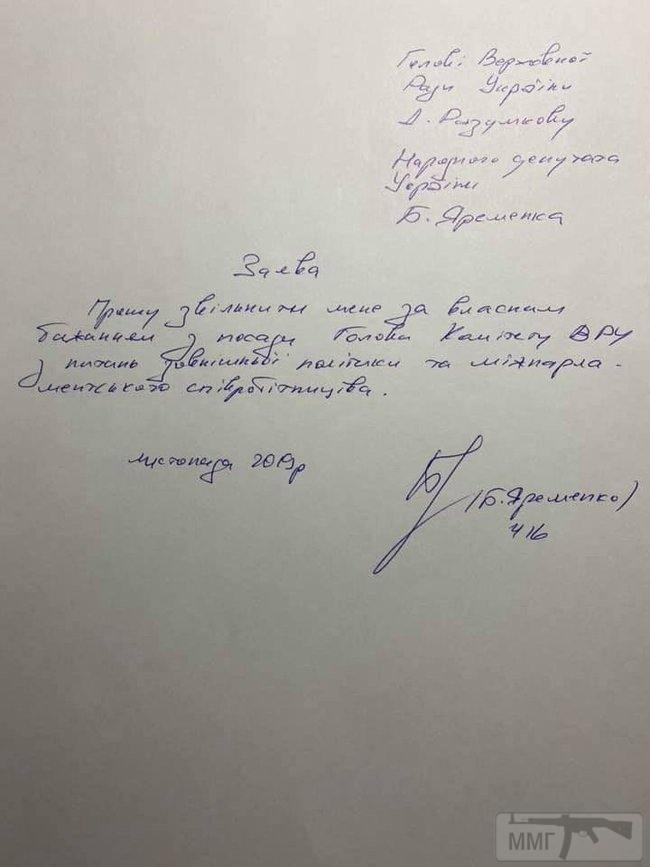 Голові Верховної
Ради України
Д. Разумкову
Народного депутата
України
Б. Яременка
Заява
Прошу звільнити мене за власним
бажанням з посади Голови Комітету ВРУ
з питань зовнішньої політики та міжпарла-
ментського співробітництва.
листопада 2019р
(Б. Яременко)
416
ММГ